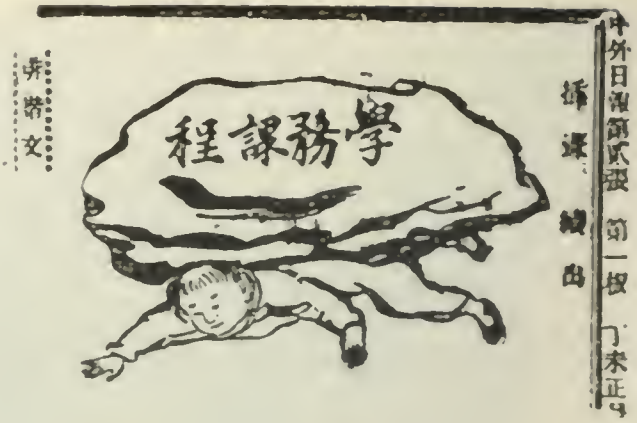 中外日報第貳張 第一板 丁未正月
插 畫 續 出
學務課程
諧文